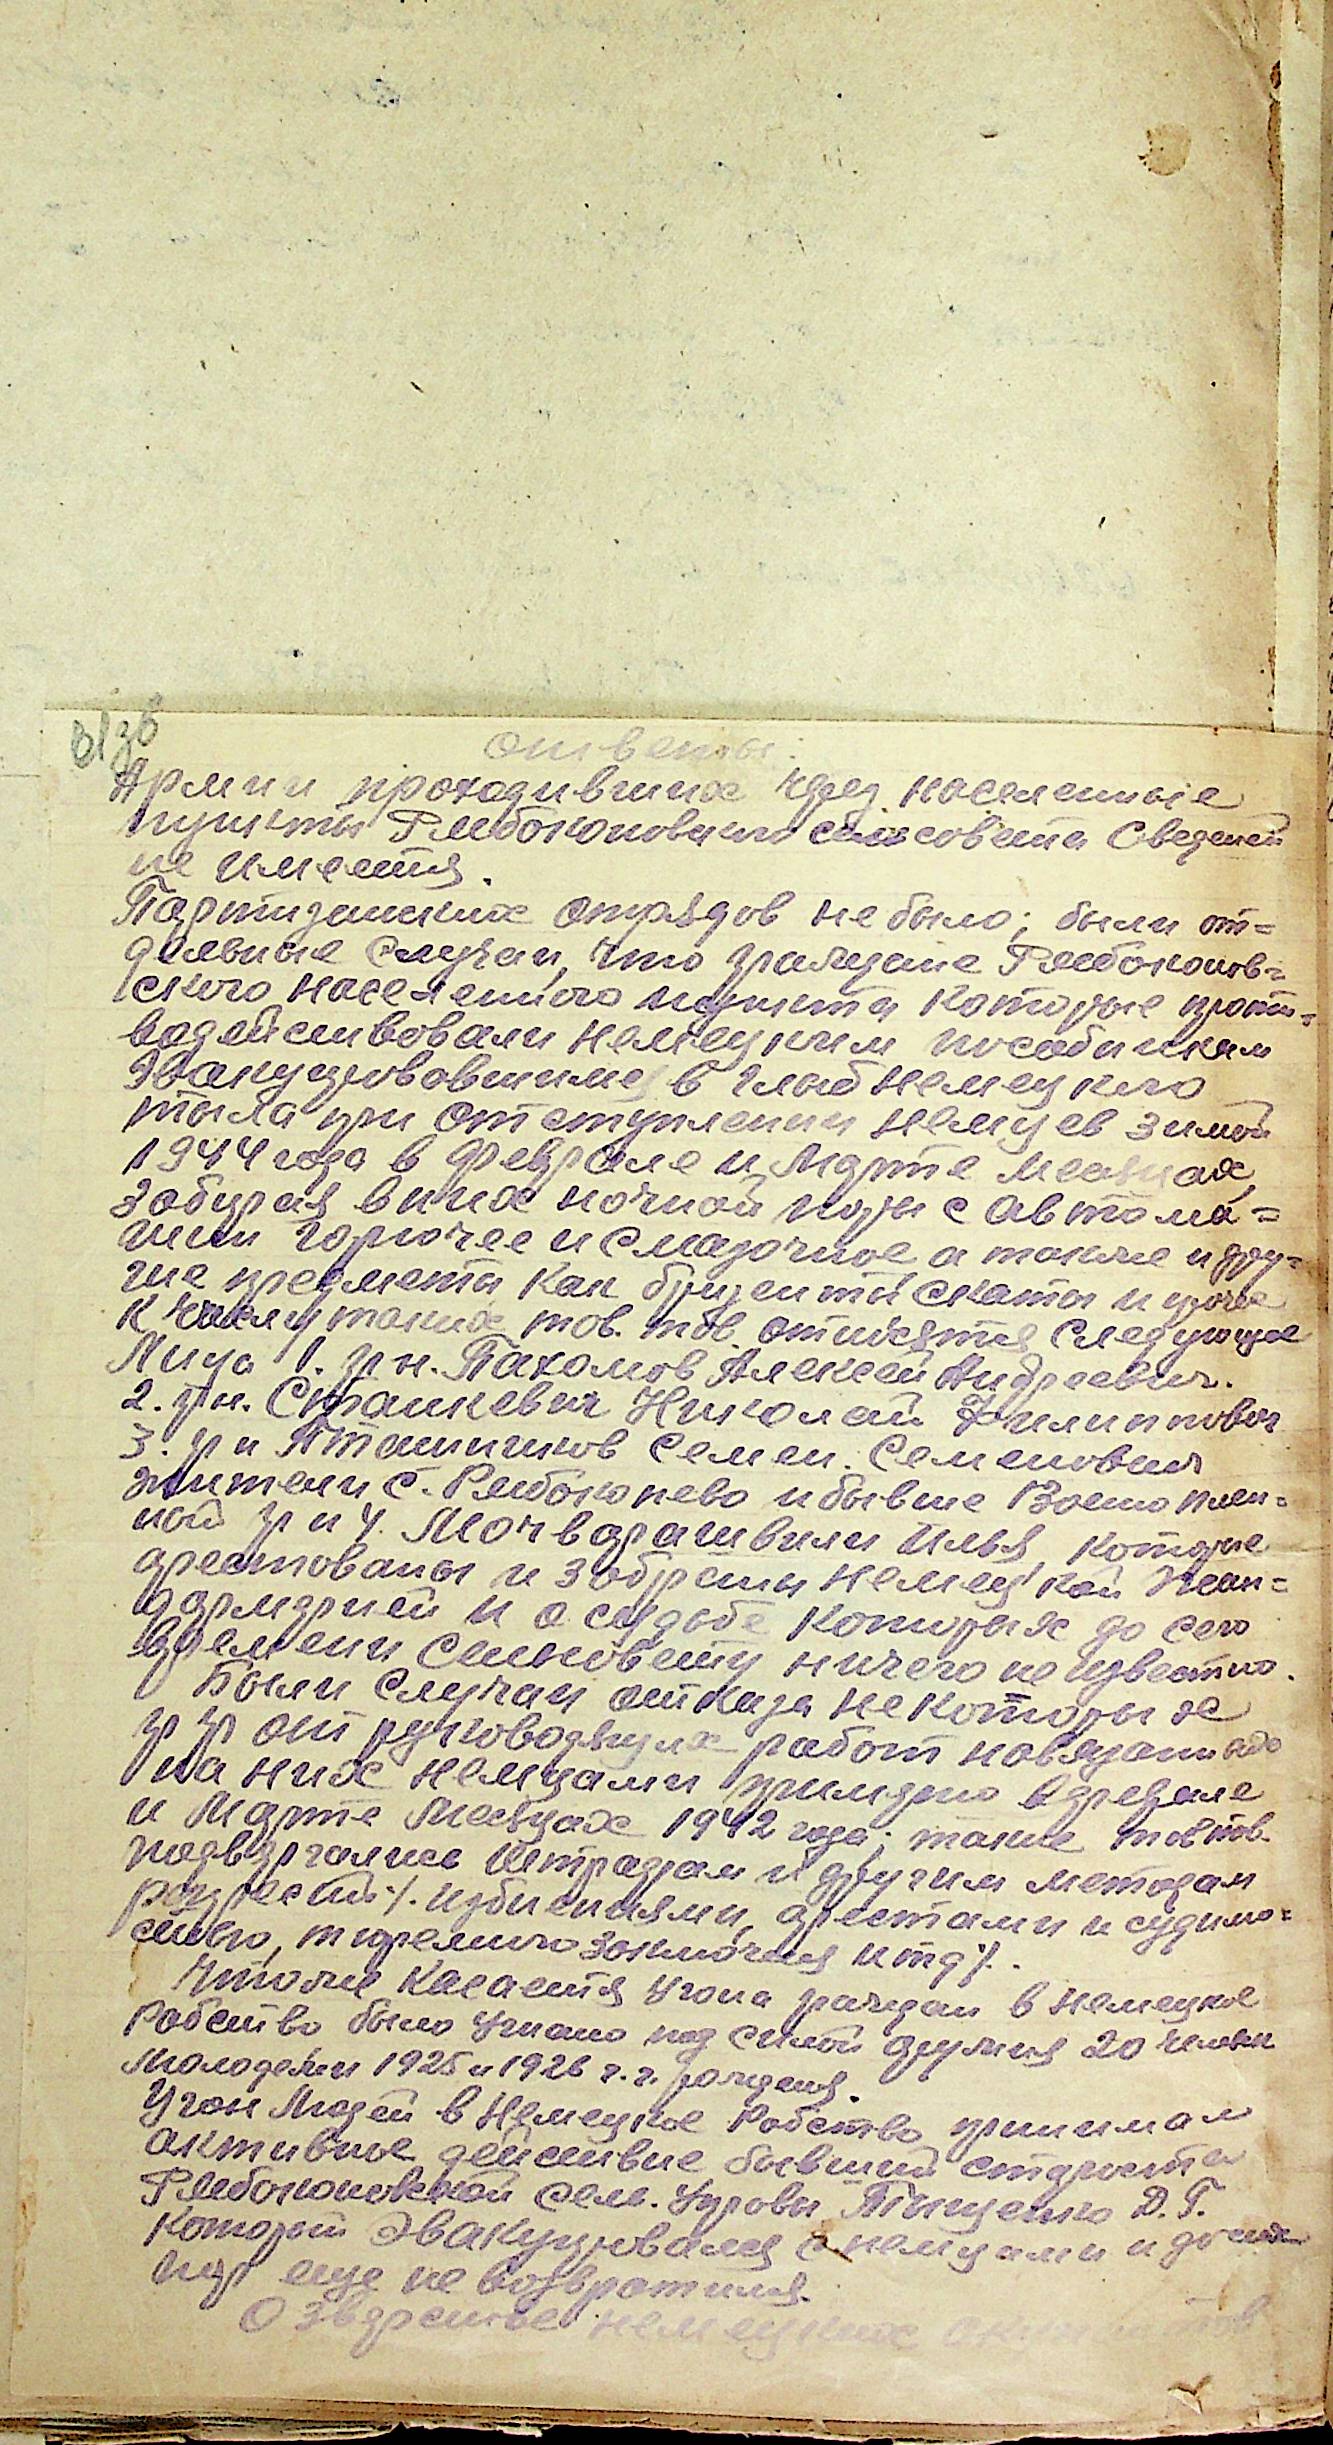 ответы.
Армии проходивших через населенные
пункты Рябоконовского сельсовета Сведений
не имеется.
Партизанских отрядов не было; были от=
дельные случаи, что граждане Рябоконов=
ского населенного пункта которые проти=
водействовали немецким пособникам
Эвакуировавшимся в глыб немецкого
тыла при отступлении немцев зимой
1944 года в феврале и Марте месяцах,
забирая в них ночной поры с автома=
шин горючее и смазочное а также и дру=
гие предметы как брезенты скаты и проче
к числу таких тов. тов. относятся следующие
Лица 1. гр н. Пахомов Алексей Андреевич.
2. гр н. Станкевич Николай Филиппович
3. гр н Пташников Семен. Семенович
жители с. Рябоконево и бывше Военноплен=
ной гр н 4. Мочварашвили Илья, которые
арестованы и забраты немецкой Жан=
дармерией и о судьбе которых до сего
времени сельсовету ничего не известно.
Были случаи отказа некоторых
гр гр от руководящих работ навязанных
на них немцами примерно в феврале
и Марте Месяцах 1942 года; такие тов тов.
подвергались Штрафам и другим методам
репрессий /. избиениями, арестами и судимо=
стью, тюремного заключения и т д /.
Что же касается Угона граждан в немецкое
Рабство было Угнано под силой оружия 20 человек
молодежи 1925 и 1926 г.г. рождения.
Угон Людей в Немецкое Рабство принимал
активное действие бывший староста
Рябоконовской сель. Управы Тыщенко Д. Г.
который Эвакуировался с немцами и до сих
пор еще не возвратился.
О зверстве немецких оккупантов